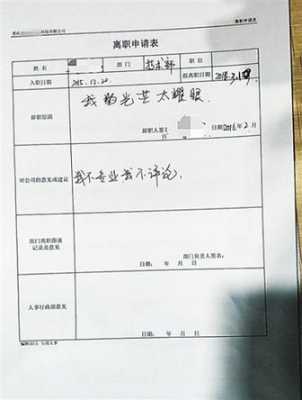 离职申请表
离职申请表
姓名 部门 技术部 职位
入职日期 2015.12.20 拟离职日期
辞职原因 我的光芒太耀眼
辞职人签 日期2016年2月
对公司的意见或建议 我不专业我不评论。
部门离职面谈记录及意见
部门负责人签名:
日期: 年 月 日
人事行政部意见
日期: 年 月 日